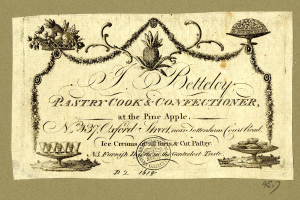 J. Betteley
PASTRY COOK & CONFECTIONER,
at the Pine Apple.
No. 337 Oxford Street, near Tottenham Court Road.
Ice Creams of all Sorts, & Cut Pastry.
NB. Furnish Deserts in the Genteelest Taste
D 2.